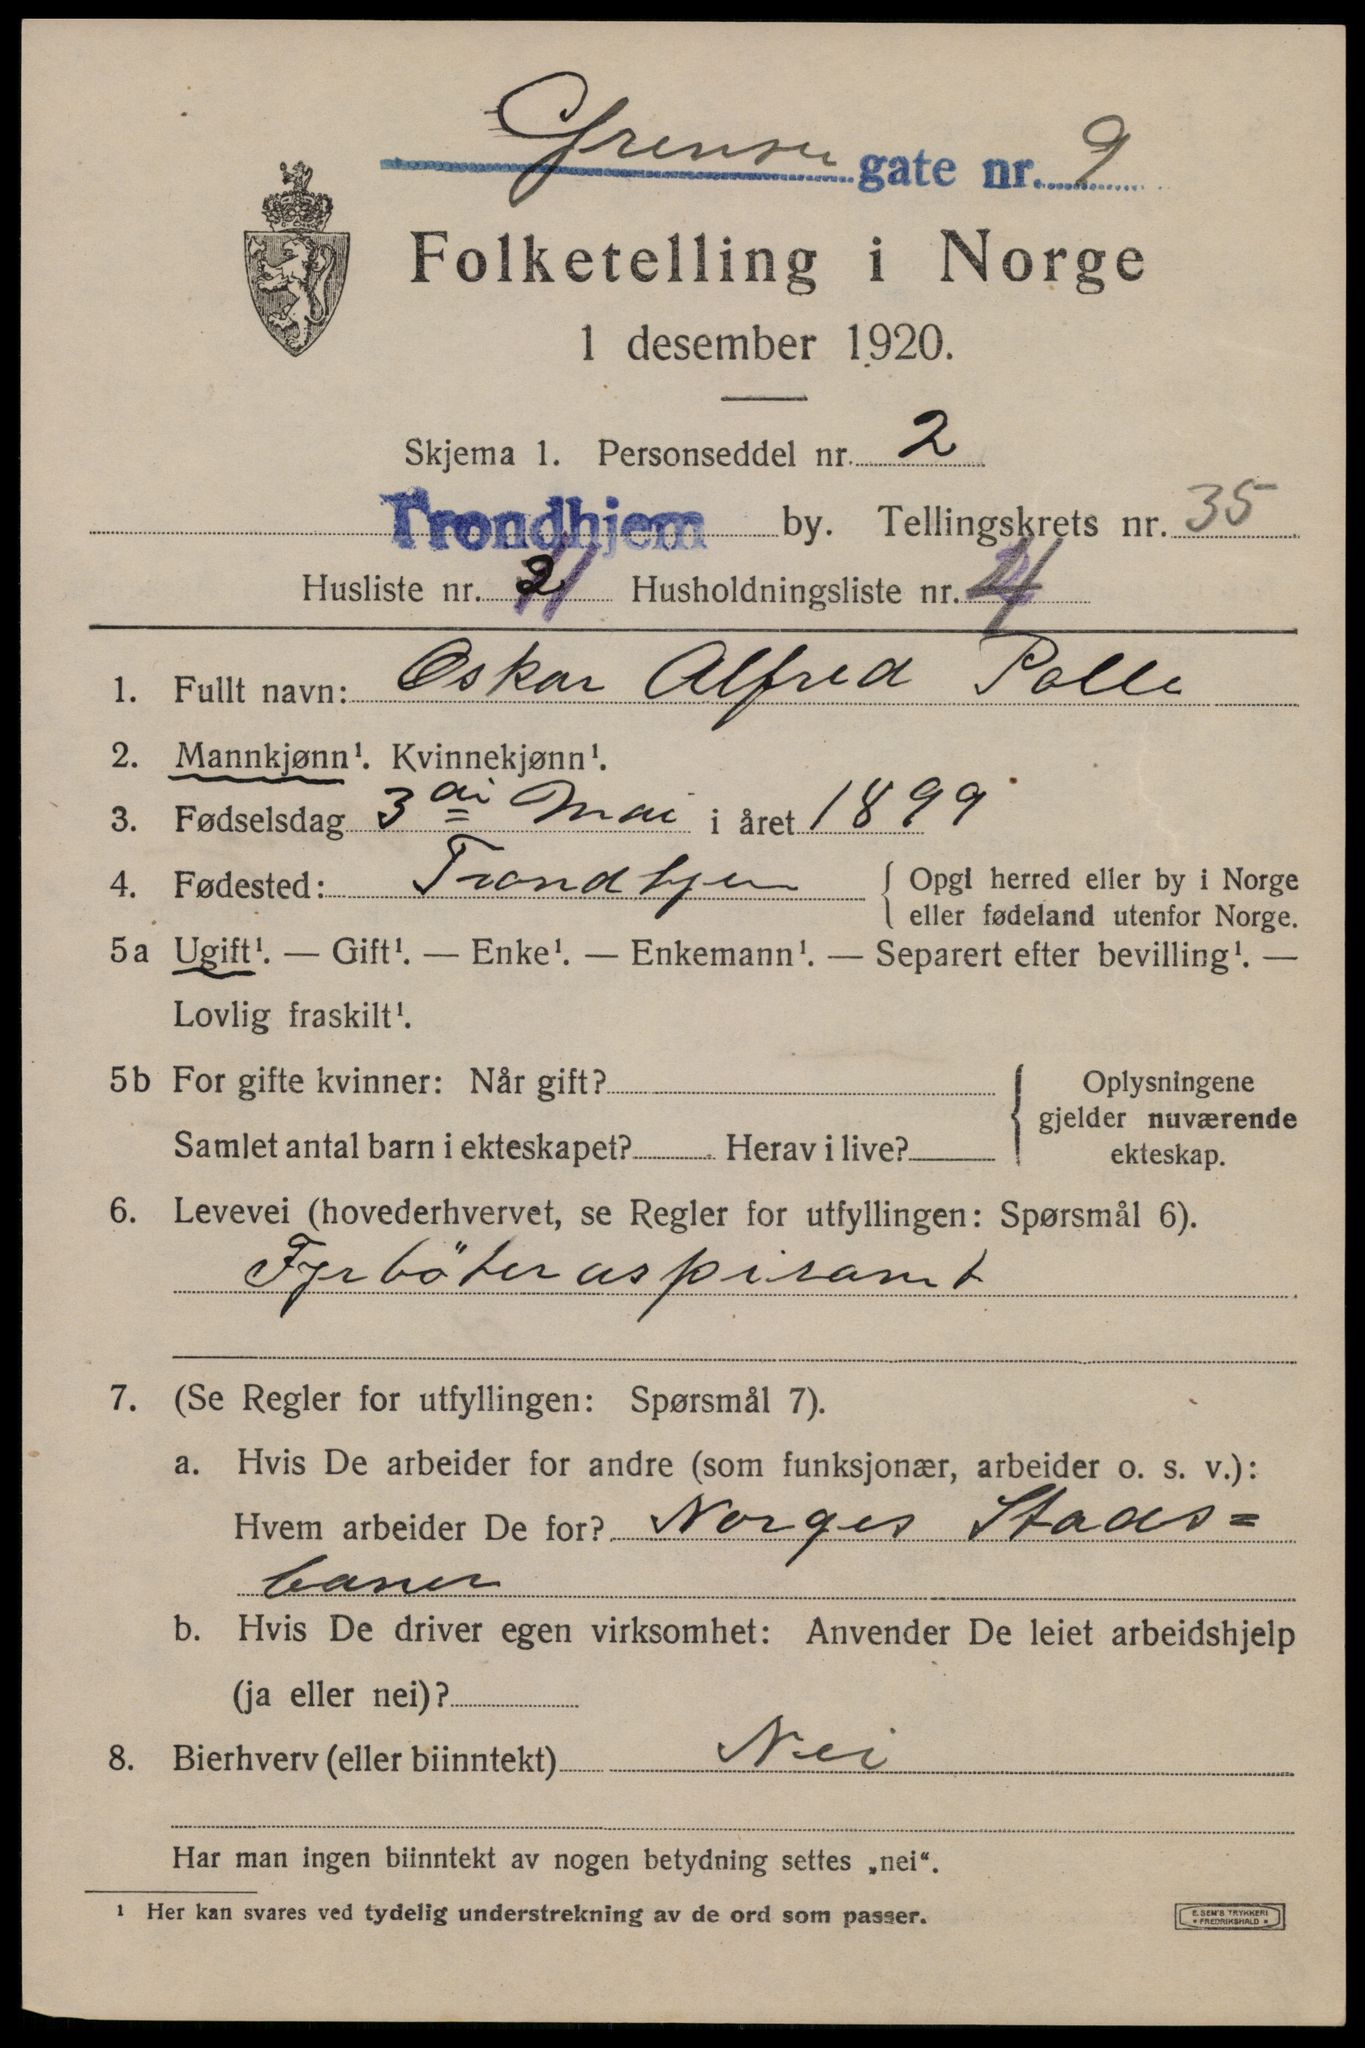 Grensen gate nr. 9
Folketelling i Norge
1 desember 1920.
Skjema 1. Personseddel nr. 2
Trondhjem by. Tellingskrets nr. 35
Husliste nr. 2 Husholdningsliste nr.
1. Fullt navn: Oskar Alfred Polle
2. Mannkjønn¹. Kvinnekjønn¹.
3. Fødselsdag 3 di Mai i året 1899
4. Fødested: Trondhjem { Opgi herred eller by i Norge
eller fødeland utenfor Norge.
5a Ugift¹. — Gift¹. — Enke¹. — Enkemann¹. — Separert efter bevilling¹. —
Lovlig fraskilt¹.
5b For gifte kvinner: Når gift? { Oplysningene
gjelder nuværende
Samlet antal barn i ekteskapet? Herav i live? ekteskap.
6. Levevei (hovederhvervet, se Regler for utfyllingen: Spørsmål 6).
Fyrböteraspirant
7. (Se Regler for utfyllingen: Spørsmål 7).
a. Hvis De arbeider for andre (som funksjonær, arbeider o. s. v.):
Hvem arbeider De for? Norges Stads=
baner
b. Hvis De driver egen virksomhet: Anvender De leiet arbeidshjelp
(ja eller nei)?
8. Bierhverv (eller biinntekt) Nei
Har man ingen biinntekt av nogen betydning settes „nei“.
¹ Her kan svares ved tydelig understrekning av de ord som passer.
E. SEM'S TRYKKERI
* FREDRIKSHALD *